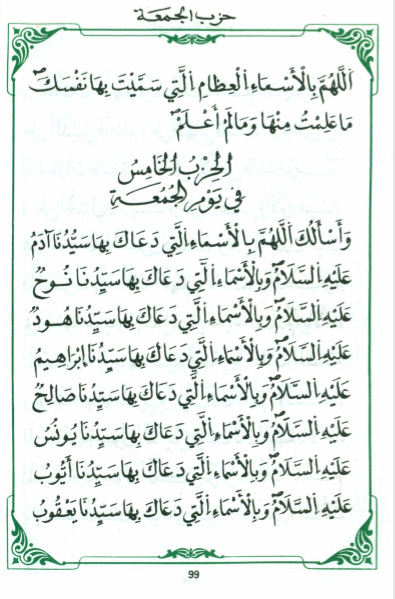 حزب الجمعة
اَللَّهُمَّ بِالْأَسْمَاءِ الْعِظَامِ الَّتِي سَمَّيْتَ بِهَا نَفْسَكَ
مَا عَلِمْتُ مِنْهَا وَمَا لَمْ أَعْلَمْ
الْحِزْبُ الْخَامِسُ
فِي يَوْمِ الْجُمُعَةِ
وَأَسْأَلُكَ اللَّهُمَّ بِالْأَسْمَاءِ الَّتِي دَعَاكَ بِهَا سَيِّدُنَا آدَمُ
عَلَيْهِ السَّلَامُ وَبِالْأَسْمَاءِ الَّتِي دَعَاكَ بِهَا سَيِّدُنَا نُوحٌ
عَلَيْهِ السَّلَامُ وَبِالْأَسْمَاءِ الَّتِي دَعَاكَ بِهَا سَيِّدُنَا هُودٌ
عَلَيْهِ السَّلَامُ وَبِالْأَسْمَاءِ الَّتِي دَعَاكَ بِهَا سَيِّدُنَا إِبْرَاهِيمُ
عَلَيْهِ السَّلَامُ وَبِالْأَسْمَاءِ الَّتِي دَعَاكَ بِهَا سَيِّدُنَا صَالِحٌ
عَلَيْهِ السَّلَامُ وَبِالْأَسْمَاءِ الَّتِي دَعَاكَ بِهَا سَيِّدُنَا يُونُسُ
عَلَيْهِ السَّلَامُ وَبِالْأَسْمَاءِ الَّتِي دَعَاكَ بِهَا سَيِّدُنَا أَيُّوبُ
عَلَيْهِ السَّلَامُ وَبِالْأَسْمَاءِ الَّتِي دَعَاكَ بِهَا سَيِّدُنَا يَعْقُوبُ
99